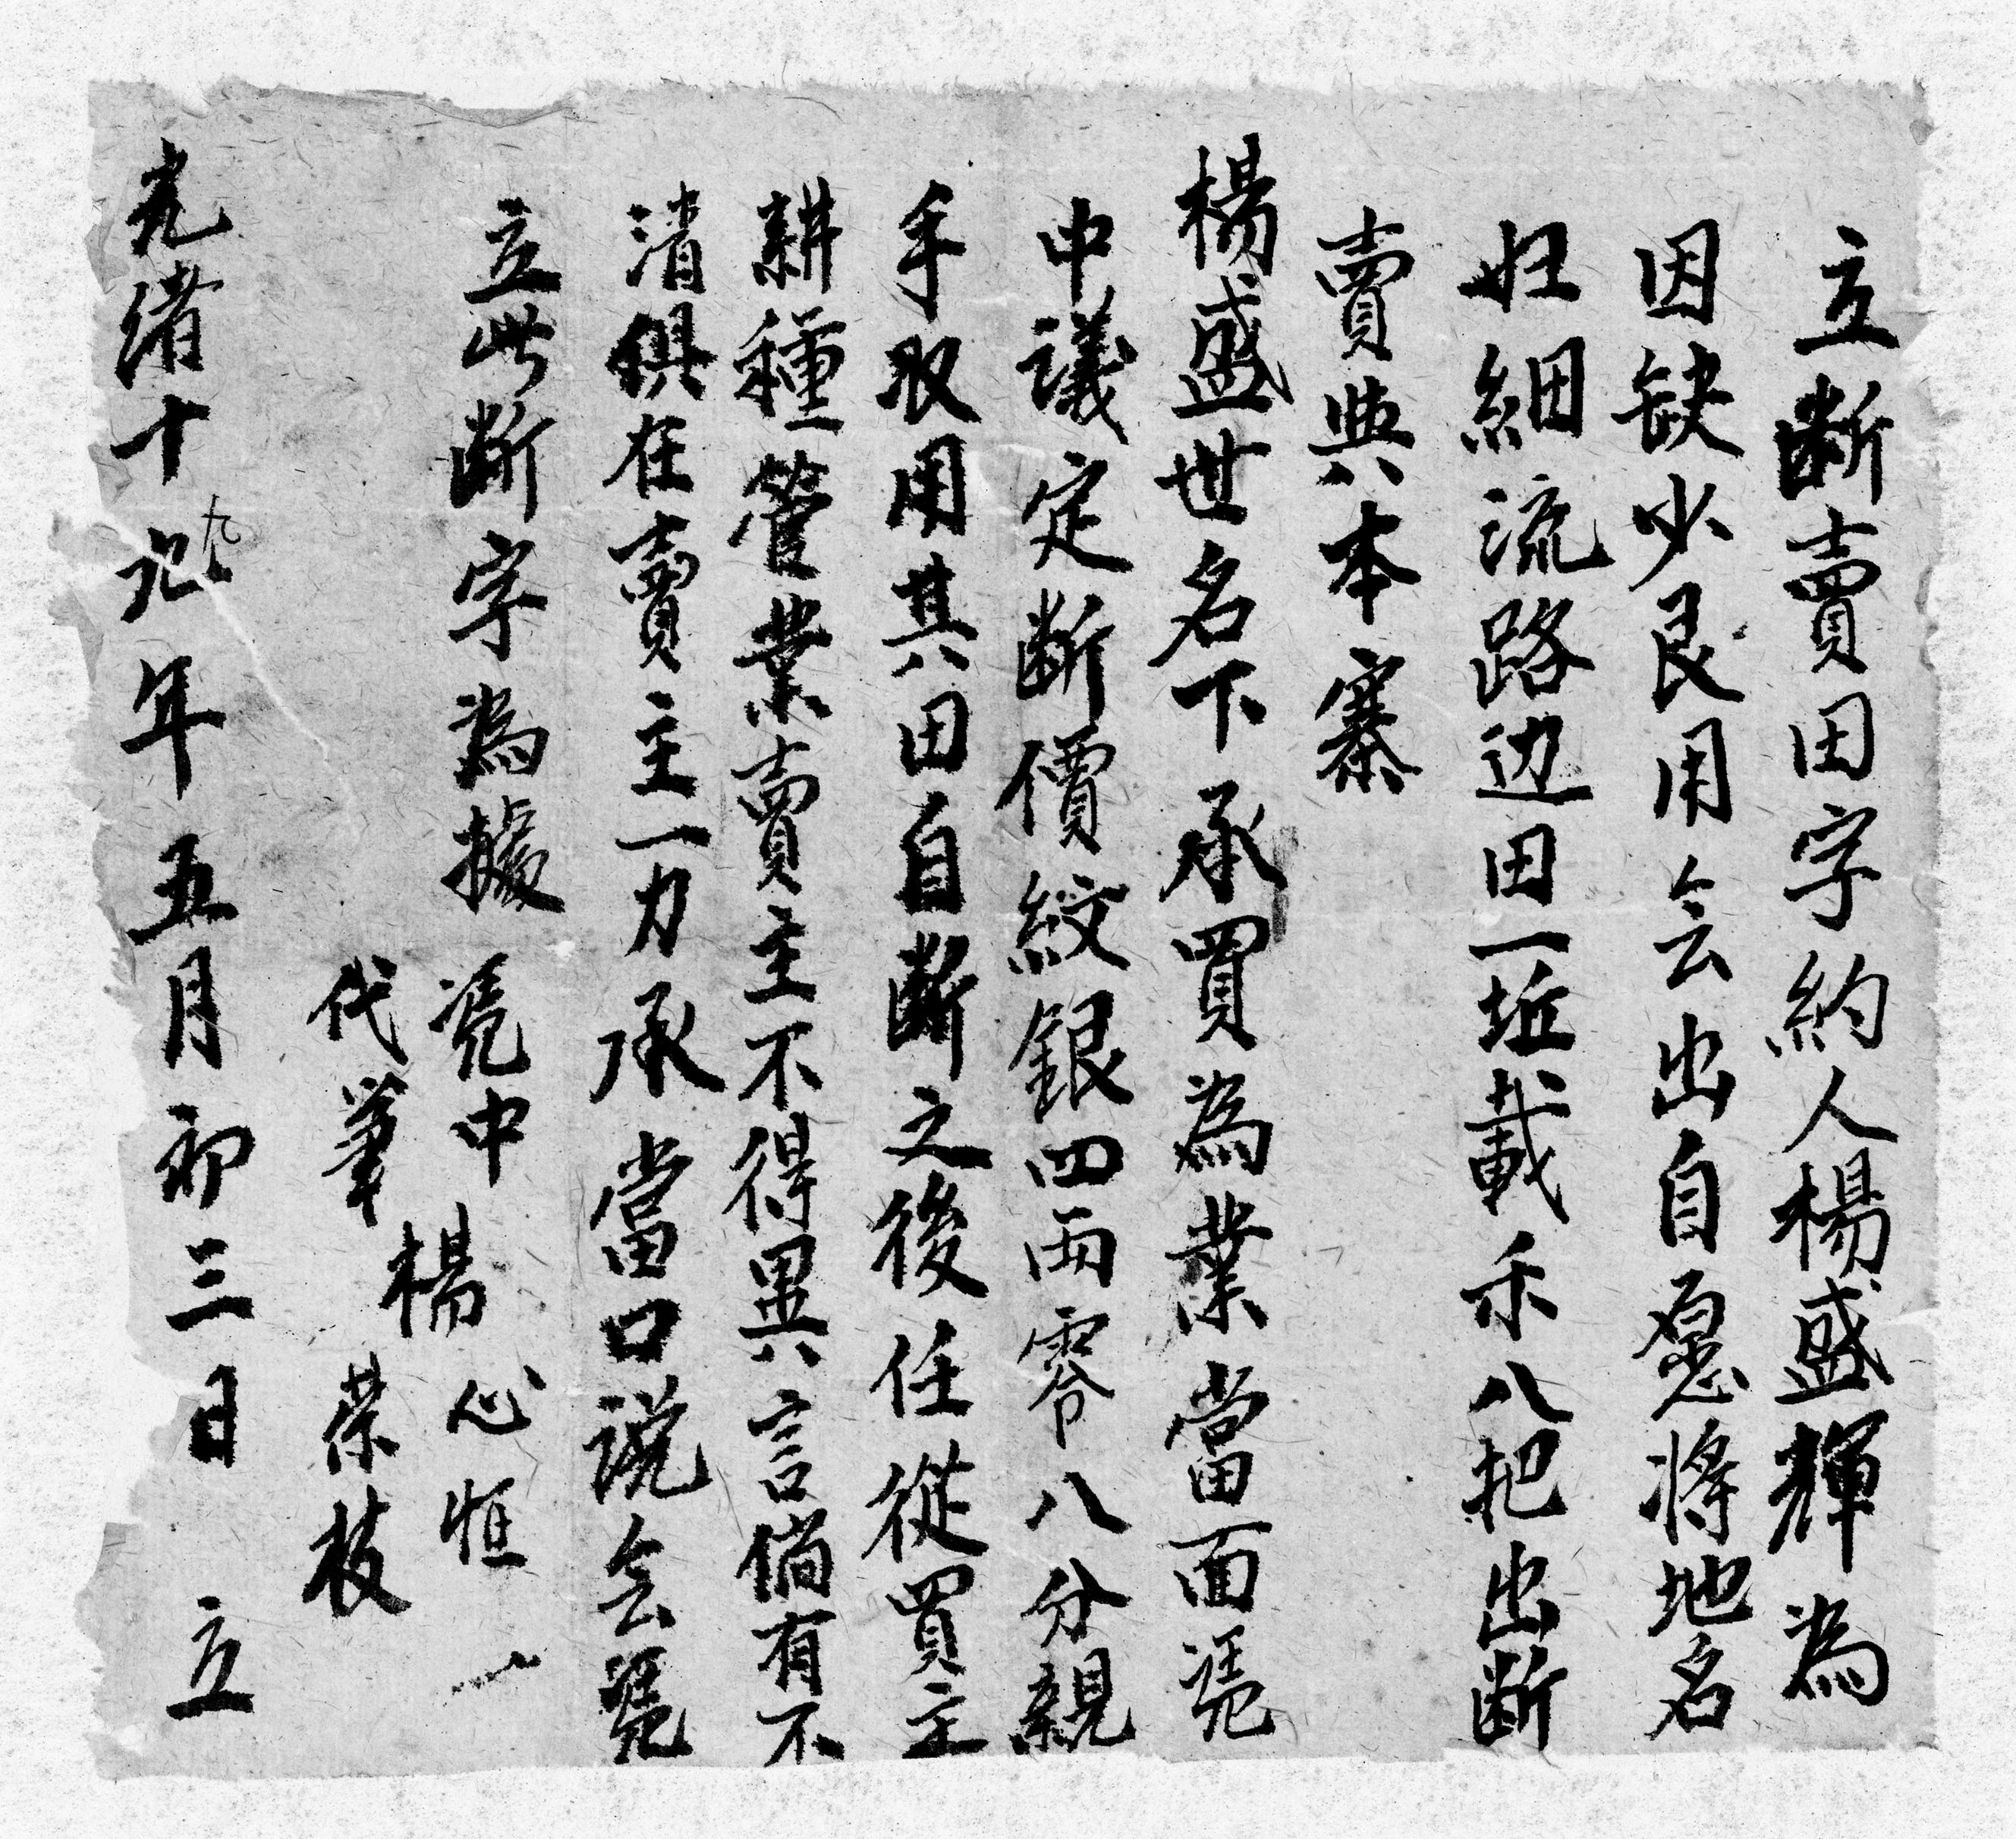 立断賣田字約人楊盛輝為
因缺少艮用会出自愿将地名
妇細流路边田一坵載禾八把出断
賣典本寨
楊盛世名下承買為業當面凴
中議定断價紋銀四両零八分親
手収用其田自断之後任從買主
耕種管業賣主不得異言倘有不
清俱在賣主一力承當口説会凴
立此断字為據
凴中楊心恒
代筆 荣枝
光绪十九年五月初三日 立